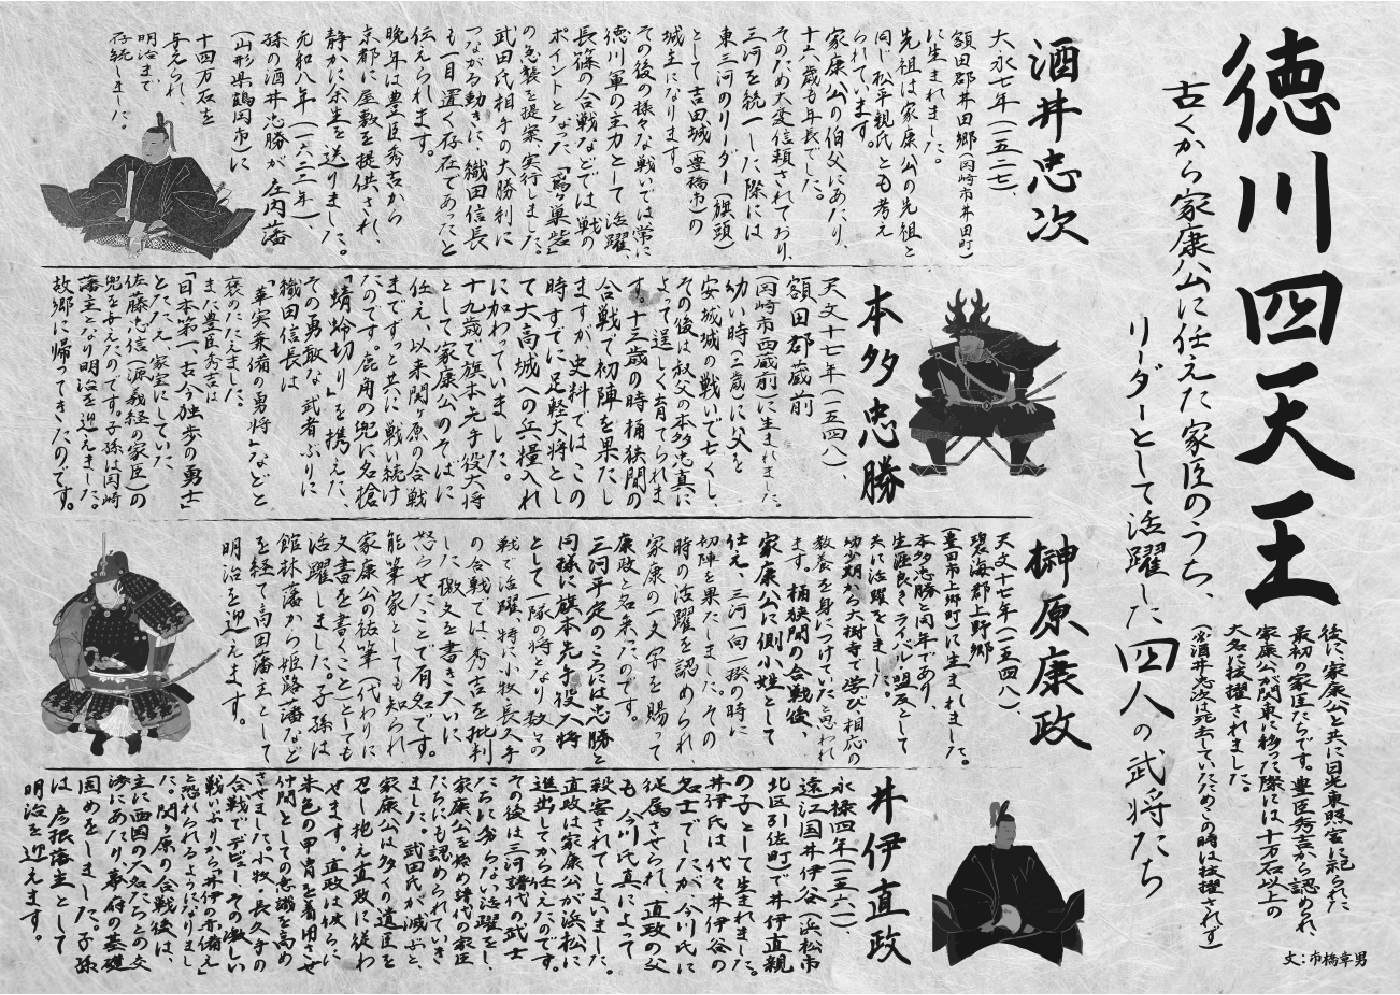 徳川四天王
古くから家康公に仕えた家臣のうち、
リーダーとして活躍した四人の武将たち
後に家康公と共に日光東照宮に祀られた
最初の家臣たちです。豊臣秀吉から認められ、
家康公が関東に移った際には十万石以上の
大名に抜擢されました。
(※酒井忠次は死去していたためこの時は抜擢されず)
文:市橋章男
酒井忠次
大永七年(一五二七)、
額田郡井田郷(岡崎市井田町)
に生まれました。
先祖は家康公の先祖と
同じ松平親氏とも考え
られています。
家康公の伯父にあたり、
十六歳も年長でした。
そのため大変信頼されており、
三河を統一した際には
東三河のリーダー(旗頭)
として吉田城(豊橋市)の
城主になります。
その後の様々な戦いでは常に
徳川軍の主力として活躍、
長篠の合戦などでは、戦の
ポイントとなった「鳶ヶ巣砦」
の急襲を提案、実行しました。
武田氏相手の大勝利に
つながる動きに、織田信長
も一目置く存在であったと
伝えられます。
晩年は豊臣秀吉から
京都に屋敷を提供され、
静かに余生を送りました。
元和八年(一六二二年)、
孫の酒井忠勝が庄内藩
(山形県鶴岡市)に
十四万石を
与えられ、
明治まで
存続しました。
本多忠勝
天文十七年(一五四八)、
額田郡蔵前
(岡崎市西蔵前)に生まれました。
幼い時(二歳)に父を
安城城の戦いで亡くし、
その後は叔父の本多忠真に
よって逞しく育てられま
す。十三歳の時桶狭間の
合戦で初陣を果たし
ますが、史料ではこの
時すでに足軽大将とし
て大高城への兵糧入れ
に加わっていました。
十九歳で旗本先手役大将
として家康公のそばに
仕え、以来関ヶ原の合戦
までずっと共に戦い続け
たのです。鹿角の兜に名槍
「蜻蛉切り」を携えた、
その勇敢な武者ぶりに
織田信長は
「華実兼備の勇将」などと
褒めたたえました。
また豊臣秀吉は
「日本第一、古今独歩の勇士」
とたたえ、家宝にしていた
佐藤忠信(源義経の家臣)の
兜を与えたのです。子孫は岡崎
藩主となり明治を迎えました。
故郷に帰ってきたのです。
榊原康政
天文十七年(一五四八)、
碧海郡上野郷
(豊田市上郷町)に生まれました。
本多忠勝と同年であり、
生涯良きライバル・盟友として
共に活躍をしました。
幼少期から大樹寺で学び相応の
教養を身につけていたと思われ
ます。桶狭間の合戦後、
家康公に側小姓として
仕え、三河一向一揆の時に
初陣を果たしました。その
時の活躍を認められ、
家康の一文字を賜って
康政と名乗ったのです。
三河平定のころには忠勝と
同様に旗本先手役大将
として一隊の将となり数々の
戦で活躍、特に小牧・長久手
の合戦では、秀吉を批判
した檄文を書き大いに
怒らせたことで有名です。
能筆家としても知られ
家康公の祐筆(代わりに
文書を書くこと)としても
活躍しました。子孫は
館林藩から姫路藩など
を経て高田藩主として
明治を迎えます。
井伊直政
永禄四年(一五六一)、
遠江国井伊谷(浜松市
北区引佐町)で井伊直親
の子として生まれました。
井伊氏は代々井伊谷の
名士でしたが、今川氏に
従属させられ、直政の父
も、今川氏真によって
殺害されてしまいました。
直政は家康公が浜松に
進出してから仕えたのです。
その後は三河譜代の武士
たちに劣らない活躍をし、
家康公を始め譜代の家臣
たちにも認められていき
ました。武田氏が滅ぶと、
家康公は多くの遺臣を
召し抱え直政に従わ
せます。直政は彼らに
朱色の甲冑を着用させ
仲間としての意識を高め
させました。小牧・長久手の
合戦でデビュー、その激しい
戦いぶりから「井伊の赤備え」
と恐れられるようになりまし
た。関ヶ原の合戦後は、
主に西国の大名たちとの交
渉にあたり、幕府の基礎
固めをしました。子孫
は彦根藩主として
明治を迎えます。